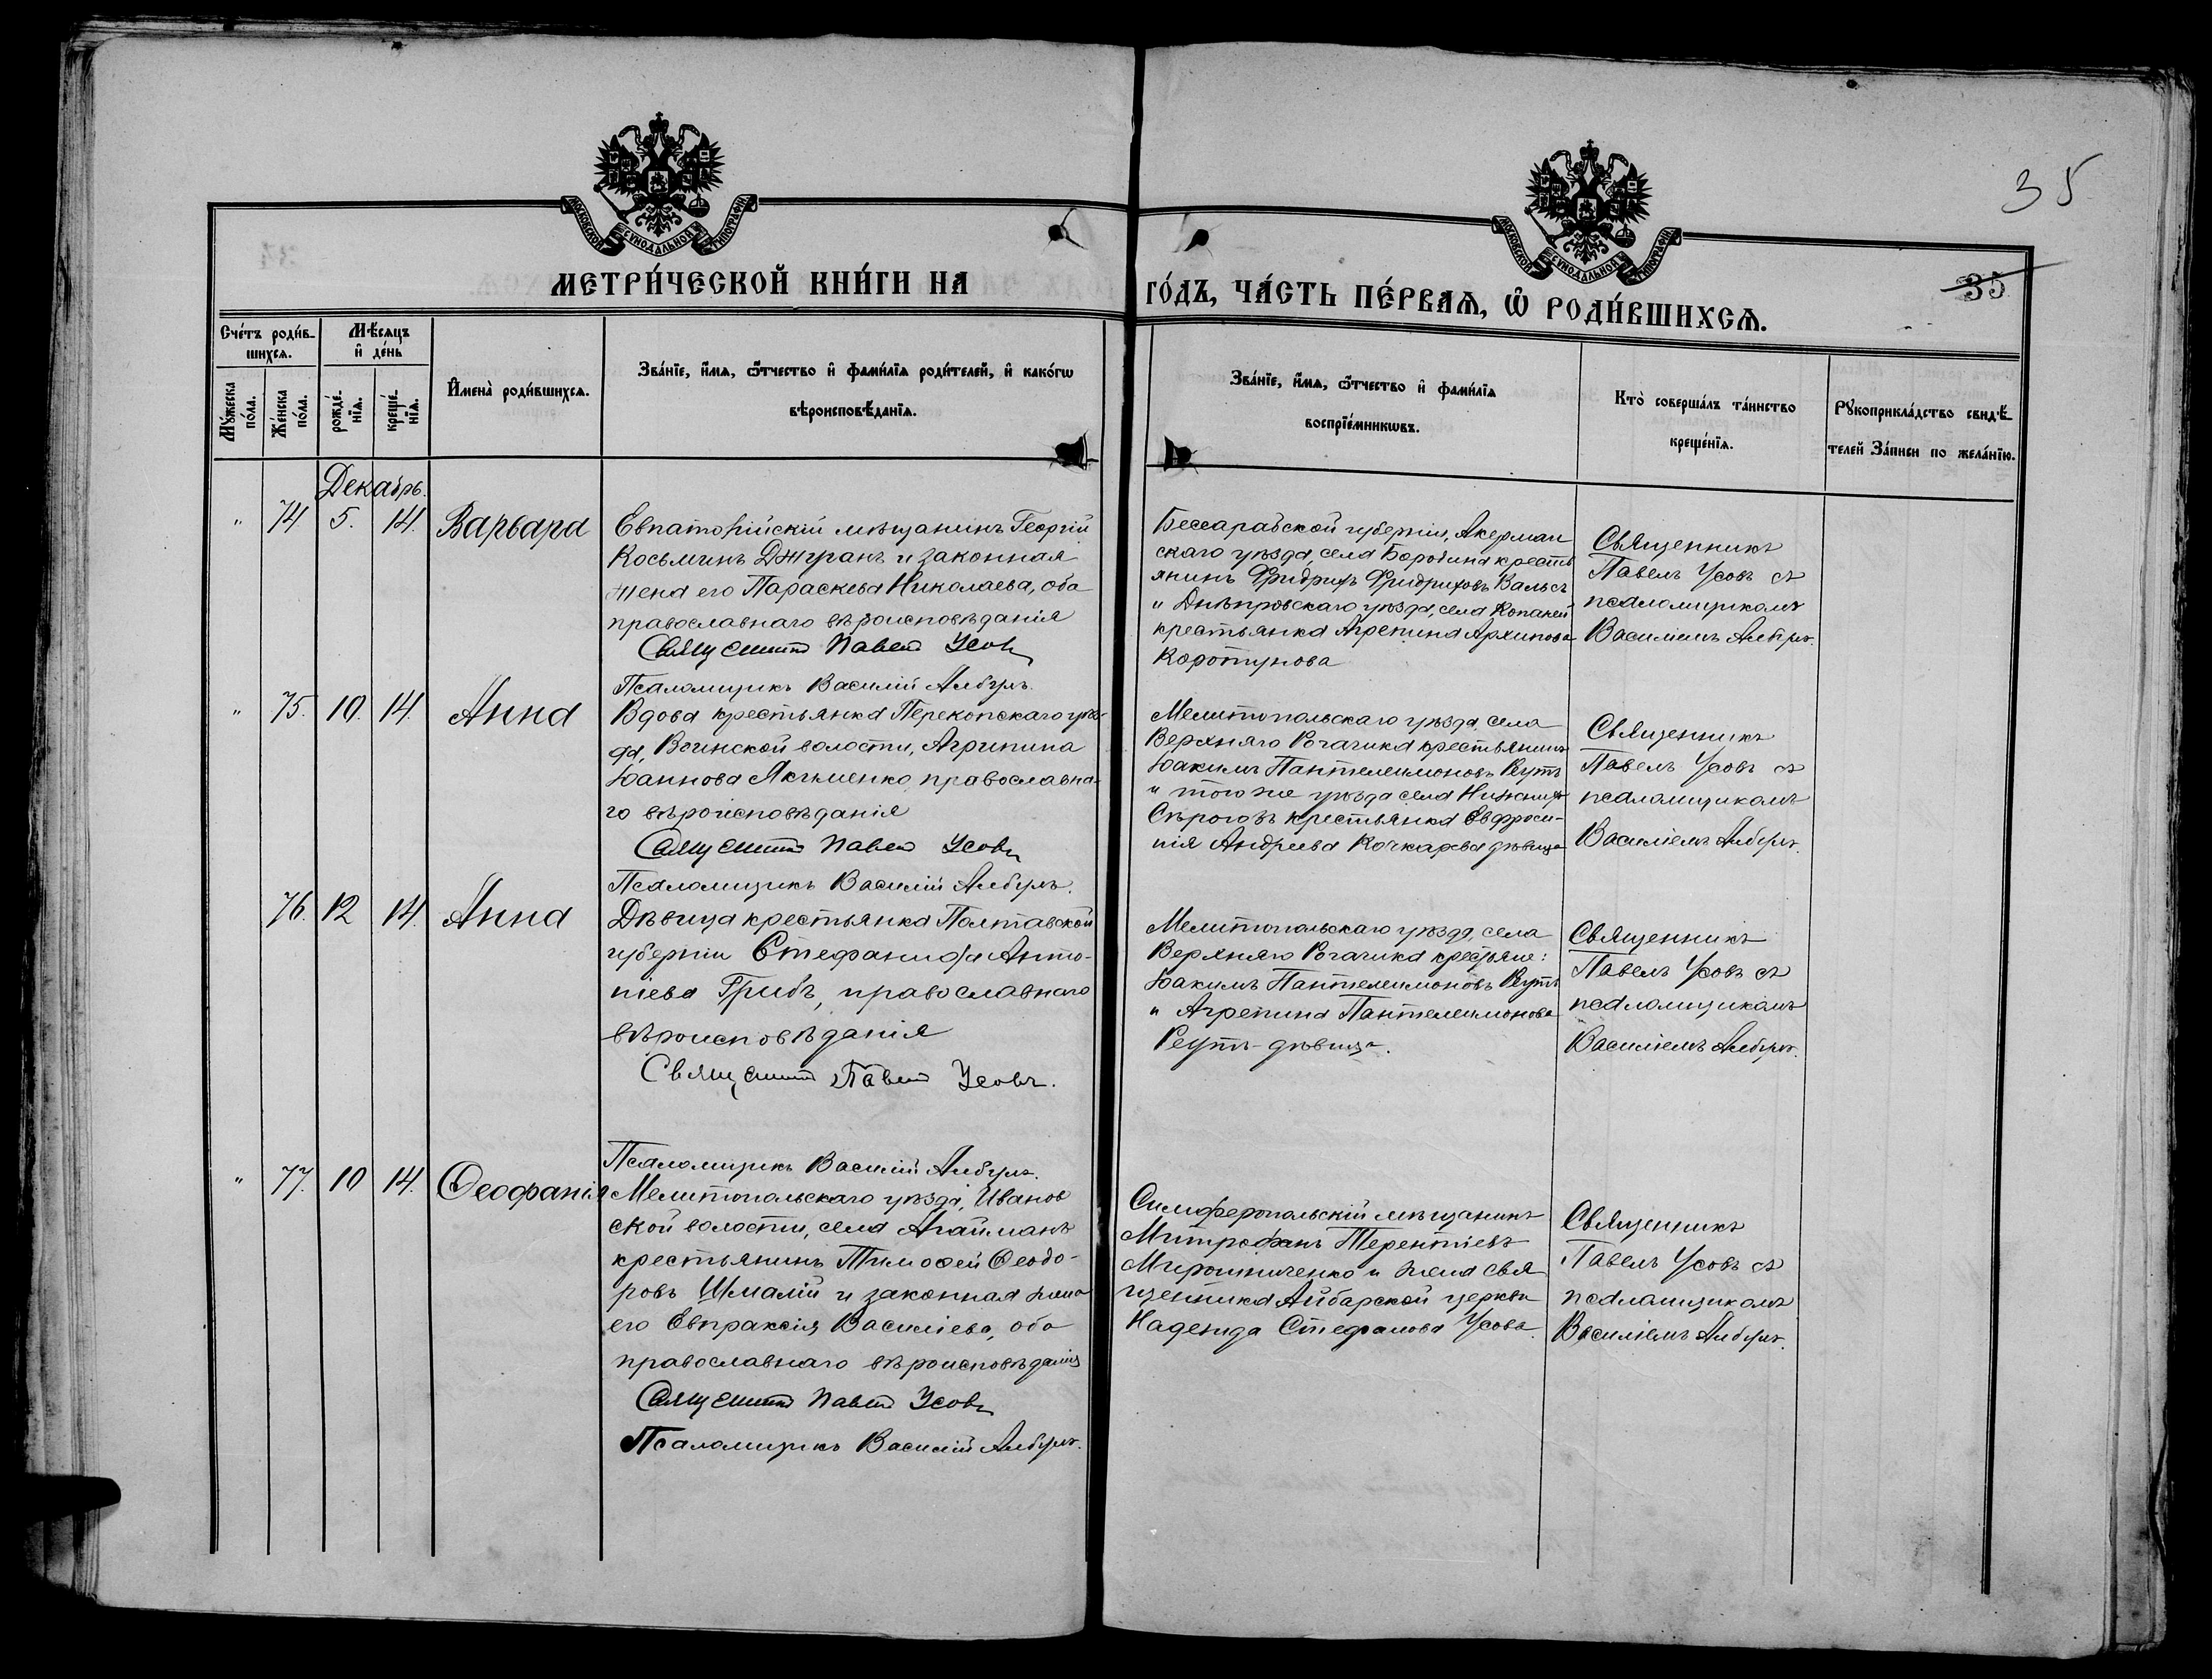 35
35
МОСКОВСКОЙ СѴНОДАЛЬНОЙ ТИПОГРАФІИ
МОСКОВСКОЙ СѴНОДАЛЬНОЙ ТИПОГРАФІИ
МЕТРИ́ЧЕСКОЙ КНИ́ГИ НА
ГО́ДЪ, ЧА́СТЬ ПЕ́РВАѦ, Ѡ РОДИ́ВШИХСѦ.
Сче́тъ роди́в-
шихсѧ.
Мѣ́сѧцъ
и҆ де́нь
Мꙋ́жеска
по́ла.
Же́нска
по́ла.
рожде́-
нїѧ.
креще́-
нїѧ.
И҆мена̀ роди́вшихсѧ.
Зва́нїе, и҆́мѧ, ѻ҆́тчество и҆ фами́лїѧ роди́телей, и҆ како́гѡ
вѣроисповѣ́данїѧ.
Зва́нїе, и҆́мѧ, ѻ҆́тчество и҆ фами́лїѧ
воспрїе́мникѡвъ.
Кто̀ соверша́лъ та́инство
креще́нїѧ.
Рꙋкоприкла́дство свидѣ́-
телей За́писи по жела́нїю.
Декабрь.
" 74 5. 14. Варвара
Евпаторійскій мѣщанинъ Георгій
Косьминъ Джуранъ и законная
жена его Параскева Николаева, оба
православнаго вѣроисповѣданія
Священникъ Павелъ Усовъ
Псаломщикъ Василій
Бессарабской губерніи, Акерман
скаго уѣзда, села Бородина кресть
янинъ Фридрихъ Фридриховъ Вальсъ
и Днѣпровскаго уѣзда, села Копаней
крестьянка Агрепина Архипова
Коротунова
Священникъ
Павелъ Усовъ съ
псаломщикомъ
Василіемъ
" 75. 10. 14. Анна
Вдова крестьянка Перекопскаго уѣз-
да, Воинской волости, Агрипина
Іоаннова Якименко, православна-
го вѣроисповѣданія
Священникъ Павелъ Усовъ
Псаломщикъ Василій
Мелитопольскаго уѣзда, села
Верхняго Рогачика крестьянинъ
Іоакимъ Пантелеимоновъ Реутъ
и того же уѣзда села Нижнихъ
Сѣрогозъ крестьянка Евфроси-
нія Андреева Кочкарева дѣвица
Священникъ
Павелъ Усовъ съ
псаломщикомъ
Василіемъ
76. 12 14. Анна
Дѣвица крестьянка Полтавской
губерніи Стефанида Анто-
ніева Грибъ, православнаго
вѣроисповѣданія
Священникъ Павелъ Усовъ.
Псаломщикъ Василій
Мелитопольскаго уѣзда, села
Верхняго Рогачика крестьяне:
Іоакимъ Пантелеимоновъ Реутъ
и Агрепина Пантелеимонова
Реутъ - дѣвица.
Священникъ
Павелъ Усовъ съ
псаломщикомъ
Василіемъ
" 77. 10 14. Ѳеофанія
Мелитопольскаго уѣзда, Иванов
ской волости, села Агайманъ
крестьянинъ Тимоѳей Ѳеодо-
ровъ Шмалій и законная жена
его Евпраксія Василіева, оба
православнаго вѣроисповѣданія
Священникъ Павелъ Усовъ
Псаломщикъ Василій
Симферопольскій мѣщанинъ
Митрофанъ Терентіевъ
Мирошниченко и жена свя
щенника Айбарской церкви
Надежда Стефанова Усова.
Священникъ
Павелъ Усовъ съ
псаломщикомъ
Василіемъ